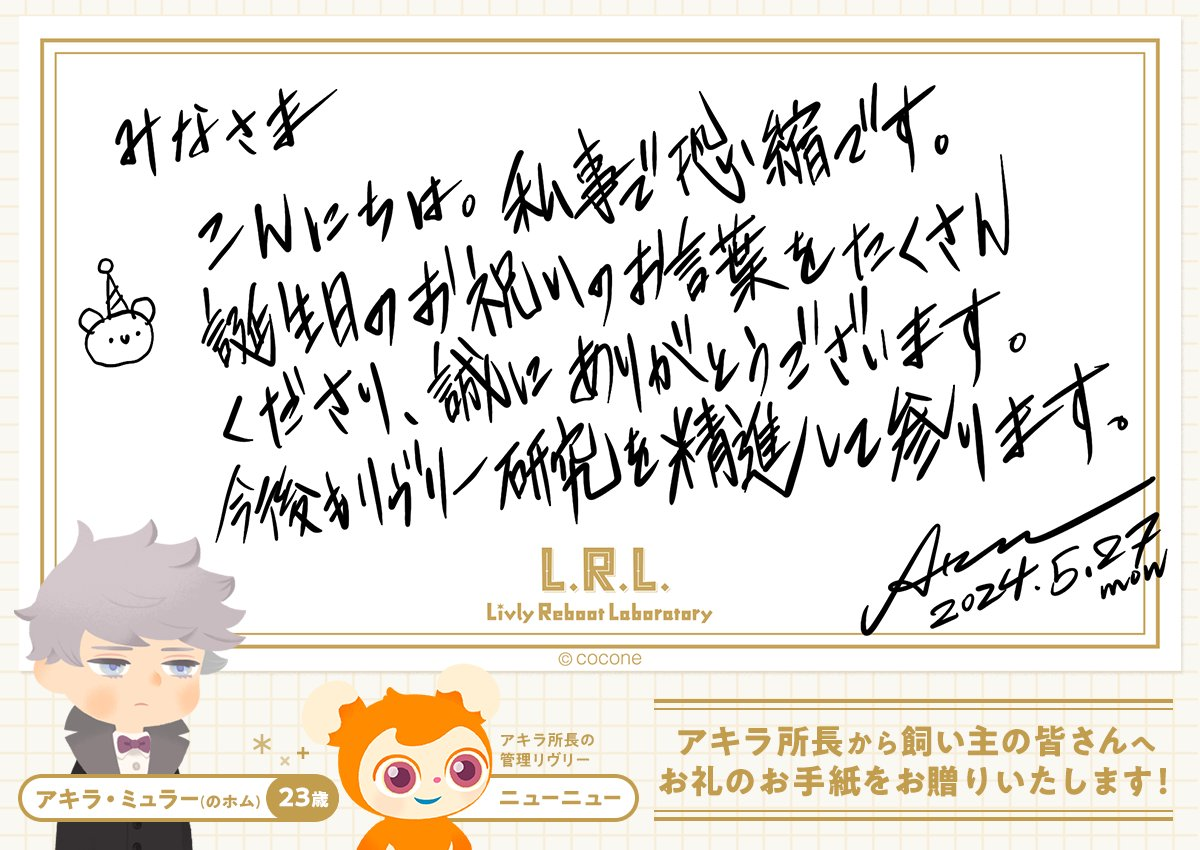 みなさま
こんにちは。私事で恐い縮です。
誕生日のお祝いのお言葉をたくさん
くださり、誠にありがとうございます。
今後もリヴリー研究を精進して参ります。
2024.5.27
mon
L.R.L.
Livly Reboot Laboratory
© cocone
アキラ・ミュラー(のホム) 23歳
アキラ所長の
管理リヴリー
ニューニュー
アキラ所長から飼い主の皆さんへ
お礼のお手紙をお贈りいたします！